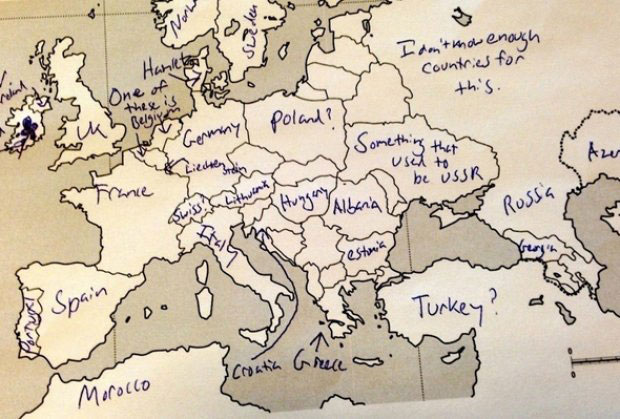 Sweden
I don't know enough
countries for
this.
Hamlet
One of
these is
Belgium
UK
Germany
Poland?
Something that
used to
be USSR
Liechtenstein
France
Swiss?
Lithuania
Hungary
Albania
Russia
Italy
estonia
Georgia
Portugal
Spain
Turkey?
Croatia
Greece
Morocco